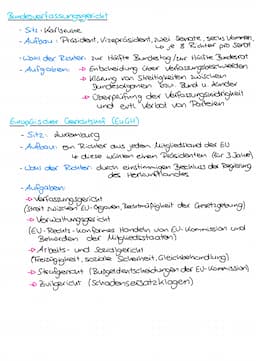 Bundesverfassungsgericht
- Sitz: Karlsruhe
- Aufbau: Präsident, Vizepräsident, zwei Senate, sechs Kammern,
↳ je 8 Richter pro Senat
- Wahl der Richter: zur Hälfte Bundestag / zur Hälfte Bundesrat
- Aufgaben: → Entscheidung über Verfassungsbeschwerden
→ Klärung von Streitigkeiten zwischen
Bundesorganen bzw. Bund u. Länder
→ Überprüfung der Verfassungswidrigkeit
und evtl. Verbot von Parteien
Europäischer Gerichtshof (EuGH)
- Sitz: Luxemburg
- Aufbau: ein Richter aus jedem Mitgliedsland der EU
↳ diese wählen einen Präsidenten (für 3 Jahre)
- Wahl der Richter: durch einstimmigen Beschluss der Regierung
des Herkunftlandes
- Aufgaben:
→ Verfassungsgericht
(Streit zwischen EU-Organen, Rechtmäßigkeit der Gesetzgebung)
→ Verwaltungsgericht
(EU-Rechts-konformes Handeln von EU-Kommission und
Behörden der Mitgliedsstaaten)
→ Arbeits- und Sozialgericht
(Freizügigkeit, soziale Sicherheit, Gleichbehandlung)
→ Strafgericht (Bußgeldentscheidungen der EU-Kommission)
→ Zivilgericht (Schadensersatzklagen)